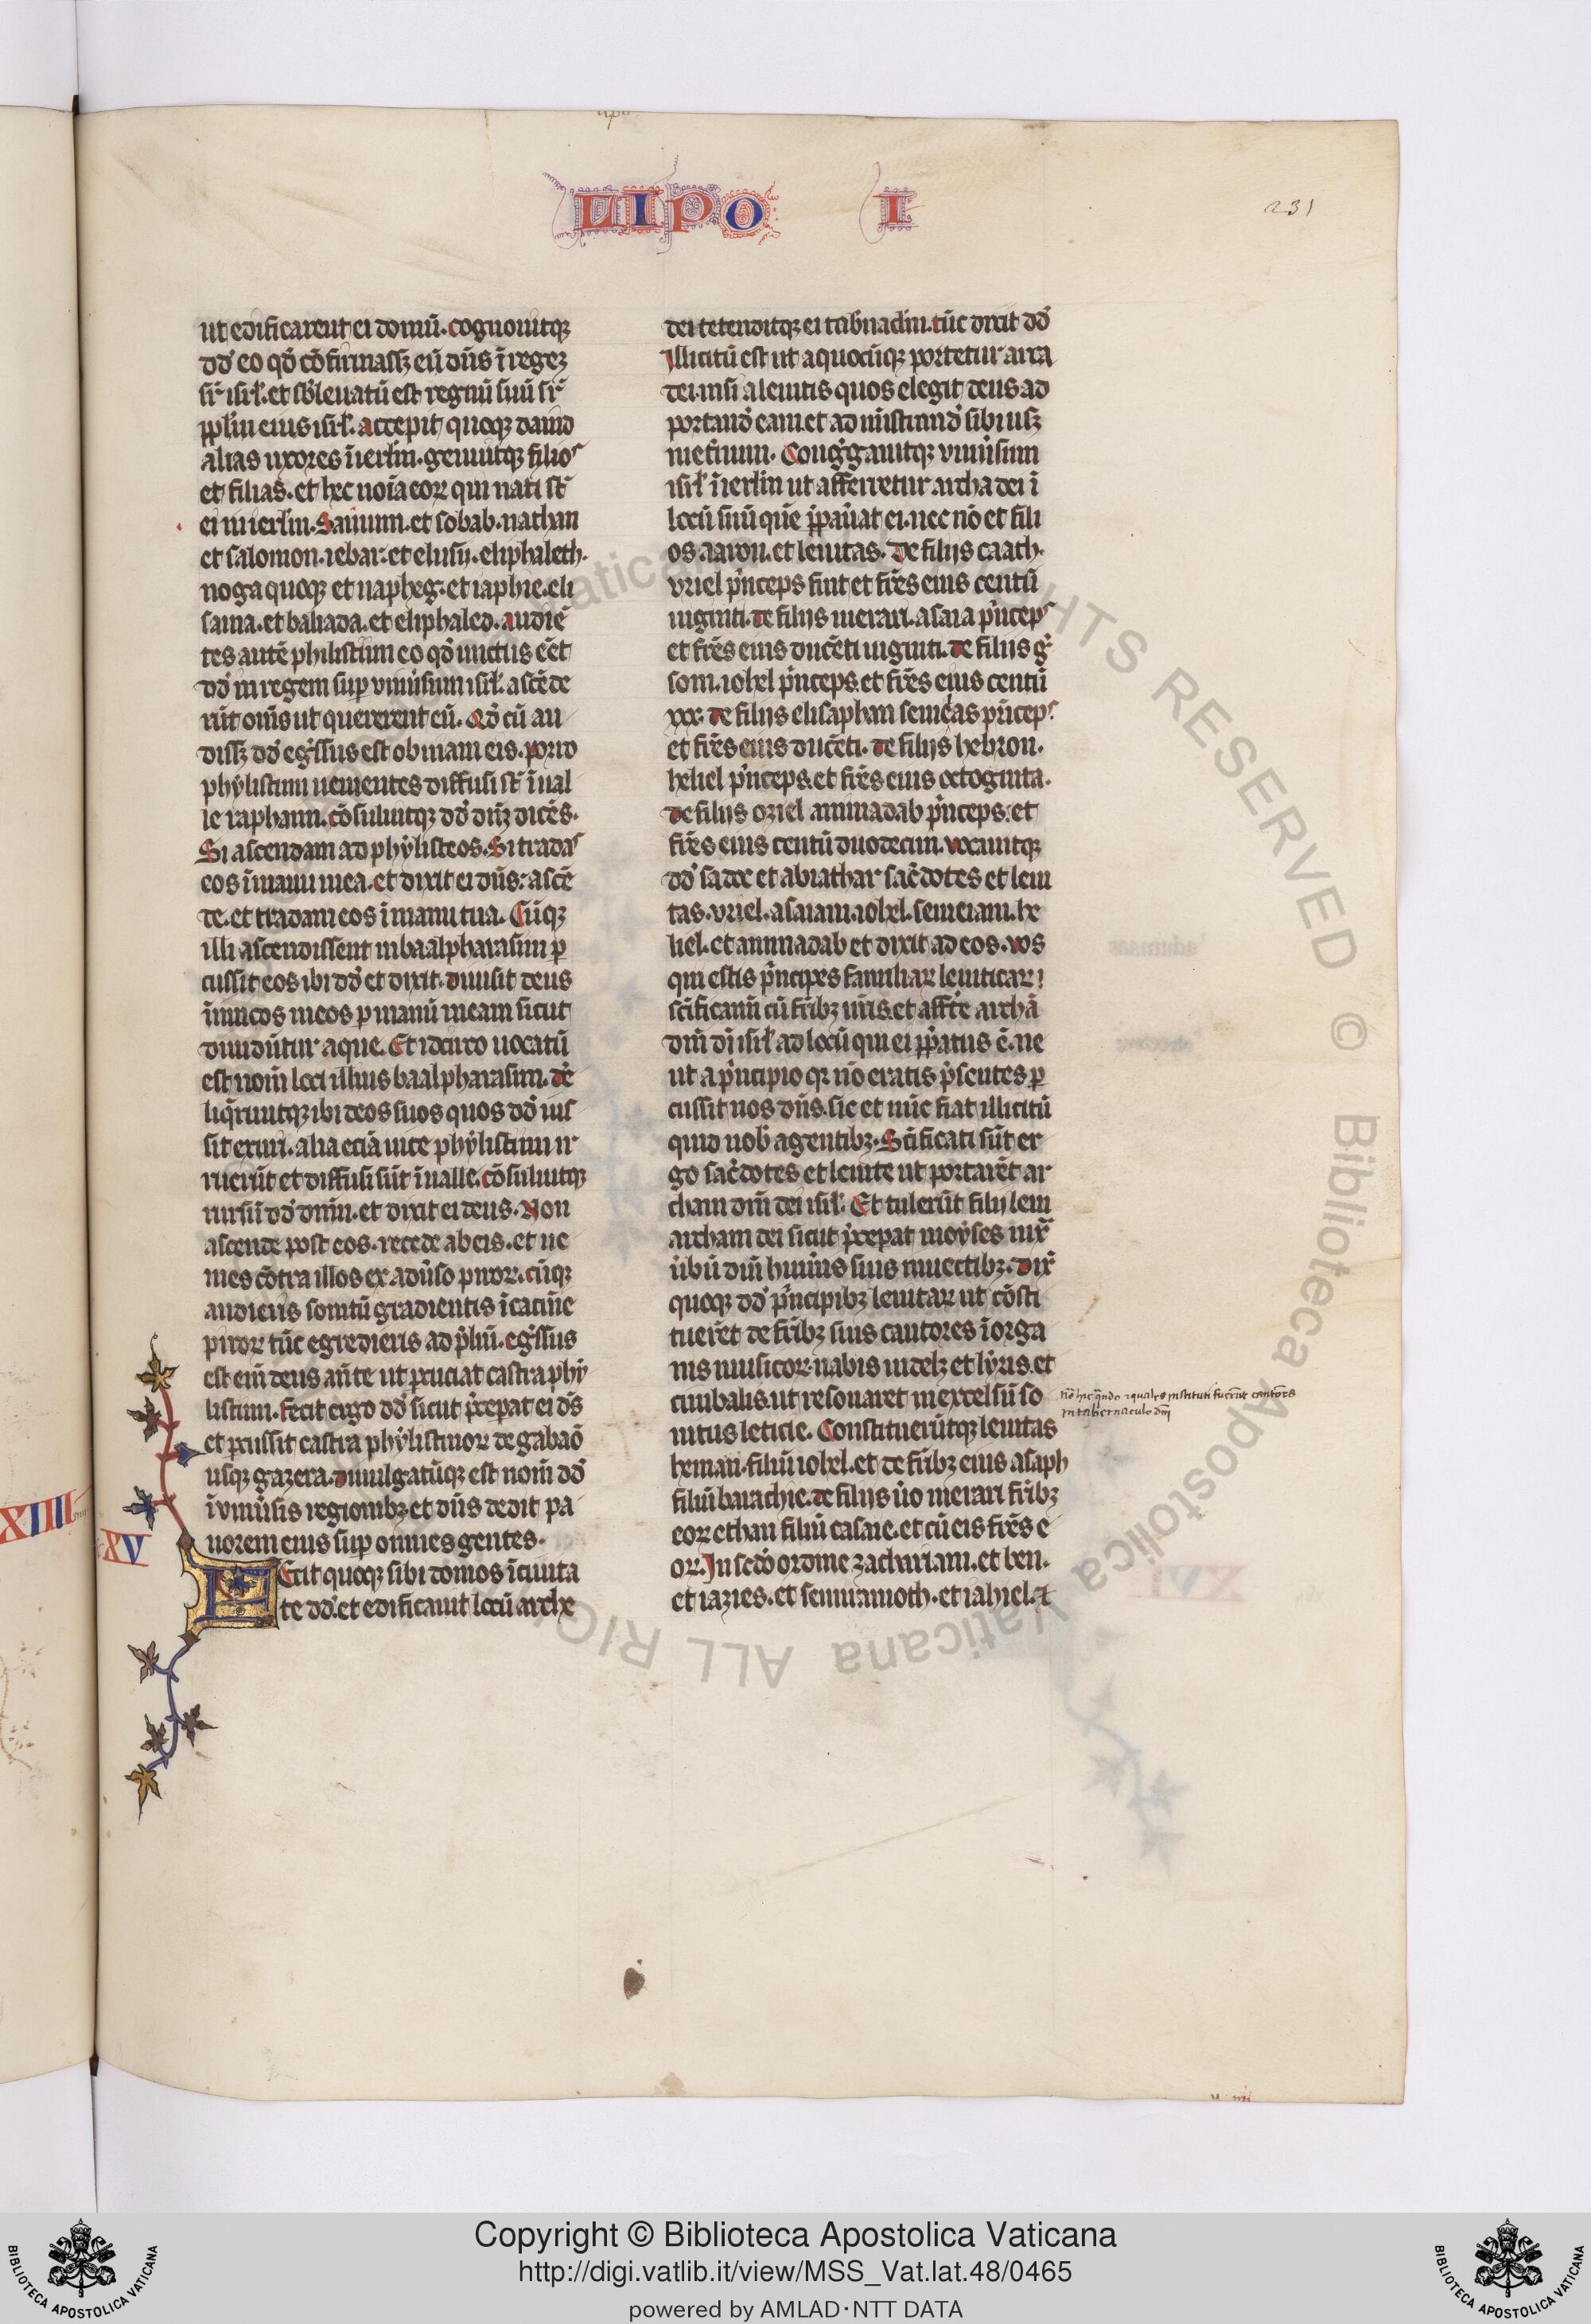 LIPO I
231
ut edificarent ei domū. cognouitqꝫ
dd̄ eo qd̄ cōfirmassꝫ eū dn̄s ī regeꝫ
sr̄ isrl̄. et sb̄leuatū est regnū suū sr̄
ppl̄m eius isrl̄. accepit quoqꝫ dauid
alias uxores ī ierlm̄. genuitqꝫ filios
et filias. et hec noīa eoꝝ qui nati st̄
ei in ierlm̄. Samum. et sobab. nathan
et salomon. iebar. et elusu. eliphaleth.
noga quoqꝫ et napheg. et iaphie. eli
sama. et baliada. et eliphaled. audiē
tes autē philistiim eo qd̄ unctus eēt
dd̄ in regem suꝑ uniūsum isrl̄. ascēde
rūt om̄s ut quererent eū. Qd̄ cū au
dissꝫ dd̄ egr̄ssus est obuiam eis. porro
phẏlistiim uenientes diffusi st̄ ī ual
le raphaim. cōsuluitqꝫ dd̄ dn̄ꝫ dicēs.
Si ascendam ad phẏlisteos. Si tradas
eos ī manu mea. et dixit ei dn̄s: ascē
de. et tradam eos ī manu tua. Cūqꝫ
illi ascendissent in baalpharasim ꝑ
cussit eos ibi dd̄ et dixit. diuisit deus
īimicos meos ꝑ manū meam sicut
diuidūtur aque. Et idcirco uocatū
est nom̄ loci illius baalpharasim. de
liqr̄untqꝫ ibi deos suos quos dd̄ ius
sit exuri. alia eciā uice phẏlistiim ir
ruerūt et diffusi sūt ī ualle. cōsuluitqꝫ
rursū dd̄ dn̄m. et dixit ei deus. Non
ascende post eos. recede ab eis. et ue
nies cōtra illos ex adūso piroꝝ. cūqꝫ
audieris sonitū gradientis ī cacumīe
piroꝝ tūc egredieris ad p̄liū. egr̄ssus
est em̄ deus an̄te ut ꝑcuciat castra phẏ
listiim. fecit ergo dd̄ sicut p̄cepat ei ds̄
et ꝑcussit castra phẏlistinoꝝ de gabaō
usqꝫ gazera. diuulgatūqꝫ est nom̄ dd̄
ī uniūsis regionibꝫ et dn̄s dedit pa
uorem eius suꝑ omnes gentes.
XIIII
XV
Fecit quoqꝫ sibi domos ī ciuita
te dd̄. et edificauit locū arche
dei tetenditqꝫ ei tab̄nac̄lm. tūc dixit dd̄
Illicitū est ut a quocūqꝫ portetur arca
dei. nisi a leuitis quos elegit deus ad
portand̄ eam. et ad mīstrand̄ sibi usqꝫ
in et̄num. Congr̄gauitqꝫ uniūsum
isrl̄ ī ierlm̄ ut afferretur archa dei ī
locū suū quē p̄paūat ei. nec nō et fili
os aaron. et leuitas. de filijs caath.
vriel pͥnceps fuit et fr̄es eius centū
uiginti. de filijs merari. asaia pͥnceps
et fr̄es eius ducēti uiginti. de filijs ger
som. iohel pͥnceps. et fr̄es eius centū
xxx. de filijs elisaphan semeias pͥnceps.
et fr̄es eius ducēti. de filijs hebron.
heliel pͥnceps. et fr̄es eius octoginta.
de filijs oziel aminadab pͥnceps: et
fr̄es eius centū duodecim. vocauitqꝫ
dd̄ sadoc et abiathar sac̄dotes et leui
tas. vriel. asaiam. iohel. semeiam. he
liel. et aminadab et dixit ad eos. vos
qui estis pͥncipes familiaꝝ leuiticaꝝ:
sc̄ificamī cū fr̄ibꝫ ur̄is. et affer̄te archā
dn̄i di isrl̄ ad locū qui ei p̄ꝑatus ē. ne
ut a pͥncipio qꝛ nō eratis p̄sentes ꝑ
cussit nos dn̄s. sic et nūc fiat illicitū
quid nob̄ agentibꝫ. Sc̄ificati sūt er
go sac̄dotes et leuite ut portarēt ar
cham dn̄i dei isrl̄. Et tulerūt filij leui
archam dei sicut p̄cepat moẏses iux̄
ūbū dn̄i humīs suis in uectibꝫ. dix̄
quoqꝫ dd̄ pͥncipibꝫ leuitaꝝ ut cōsti
tuerēt de fr̄ibꝫ suis cantores ī orga
nis musicoꝝ. nablis uidelꝫ et lẏris. et
cimbalis. ut resonaret in excelsū so
nitus leticie. Constituerūtqꝫ leuitas
heman. filiū iohel. et de fr̄ibꝫ eius asaph
filiū barachie. de filijs ūo merari fr̄ibꝫ
eoꝝ ethan filiū casaie. et cū eis fr̄es e
oꝝ. In sc̄do ordine zachariam. et ben.
et iazies. et semiramoth. et iahiel. ⁊
instituti fuer̄ut cantores
in tabernaculo dn̄i
Copyright © Biblioteca Apostolica Vaticana
http://digi.vatlib.it/view/MSS_Vat.lat.48/0465
powered by AMLAD·NTT DATA
BIBLIOTECA APOSTOLICA VATICANA
BIBLIOTECA APOSTOLICA VATICANA
© Biblioteca Apostolica Vaticana ALL RIGHTS RESERVED